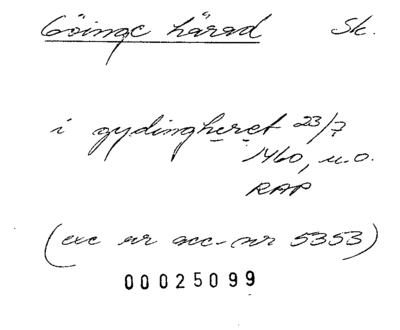 Göinge härad Sk.
i gydingheret 23/7
1460, u.o.
RAP
(exc ur acc-nr 5353)
00025099